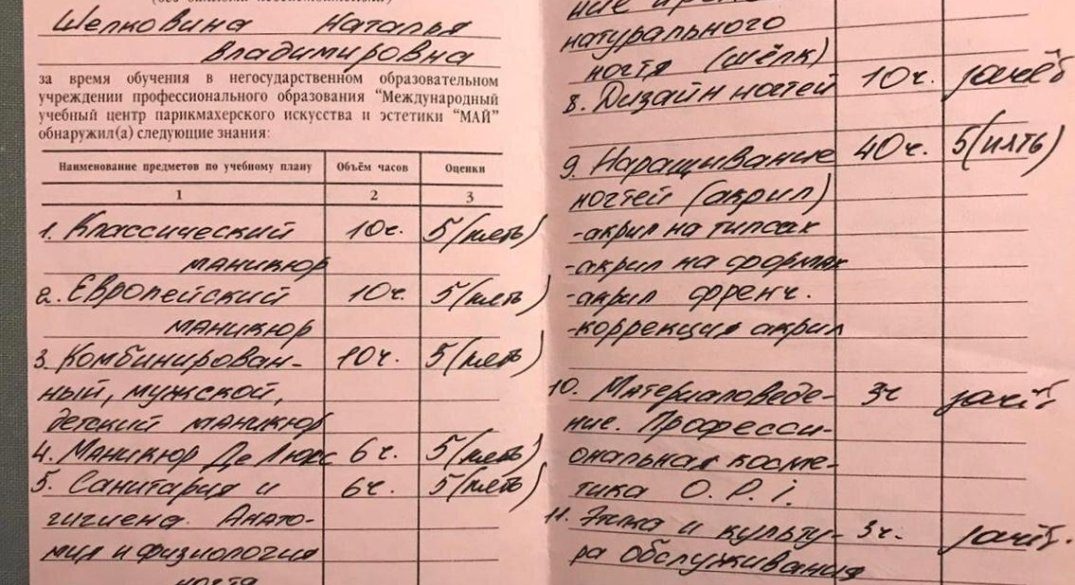 Шелковина Наталья
Владимировна
за время обучения в негосударственном образовательном
учреждении профессионального образования "Международный
учебный центр парикмахерского искусства и эстетики "МАЙ"
обнаружил(а) следующие знания:
Наименование предметов по учебному плану Объём часов Оценки
1 2 3
1. Классический 10ч. 5(пять)
маникюр
2. Европейский 10ч. 5(пять)
маникюр
3. Комбинирован- 10ч. 5(пять)
ный, мужской,
детский маникюр
4. Маникюр Де Люкс 6ч. 5(пять)
5. Санитария и 6ч. 5(пять)
гигиена. Анато-
мия и физиология
ногтя
натурального
ногтя (шёлк)
8. Дизайн ногтей 10ч. зачёт
9. Наращивание 40ч. 5(пять)
ногтей (акрил)
-акрил на типсах
-акрил на формах
-акрил френч.
-коррекция акрил
10. Материаловеде- 3ч зачёт
ние. Професси-
ональная косме-
тика O.P.i.
11. Этика и культу- 3ч. зачёт.
ра обслуживания